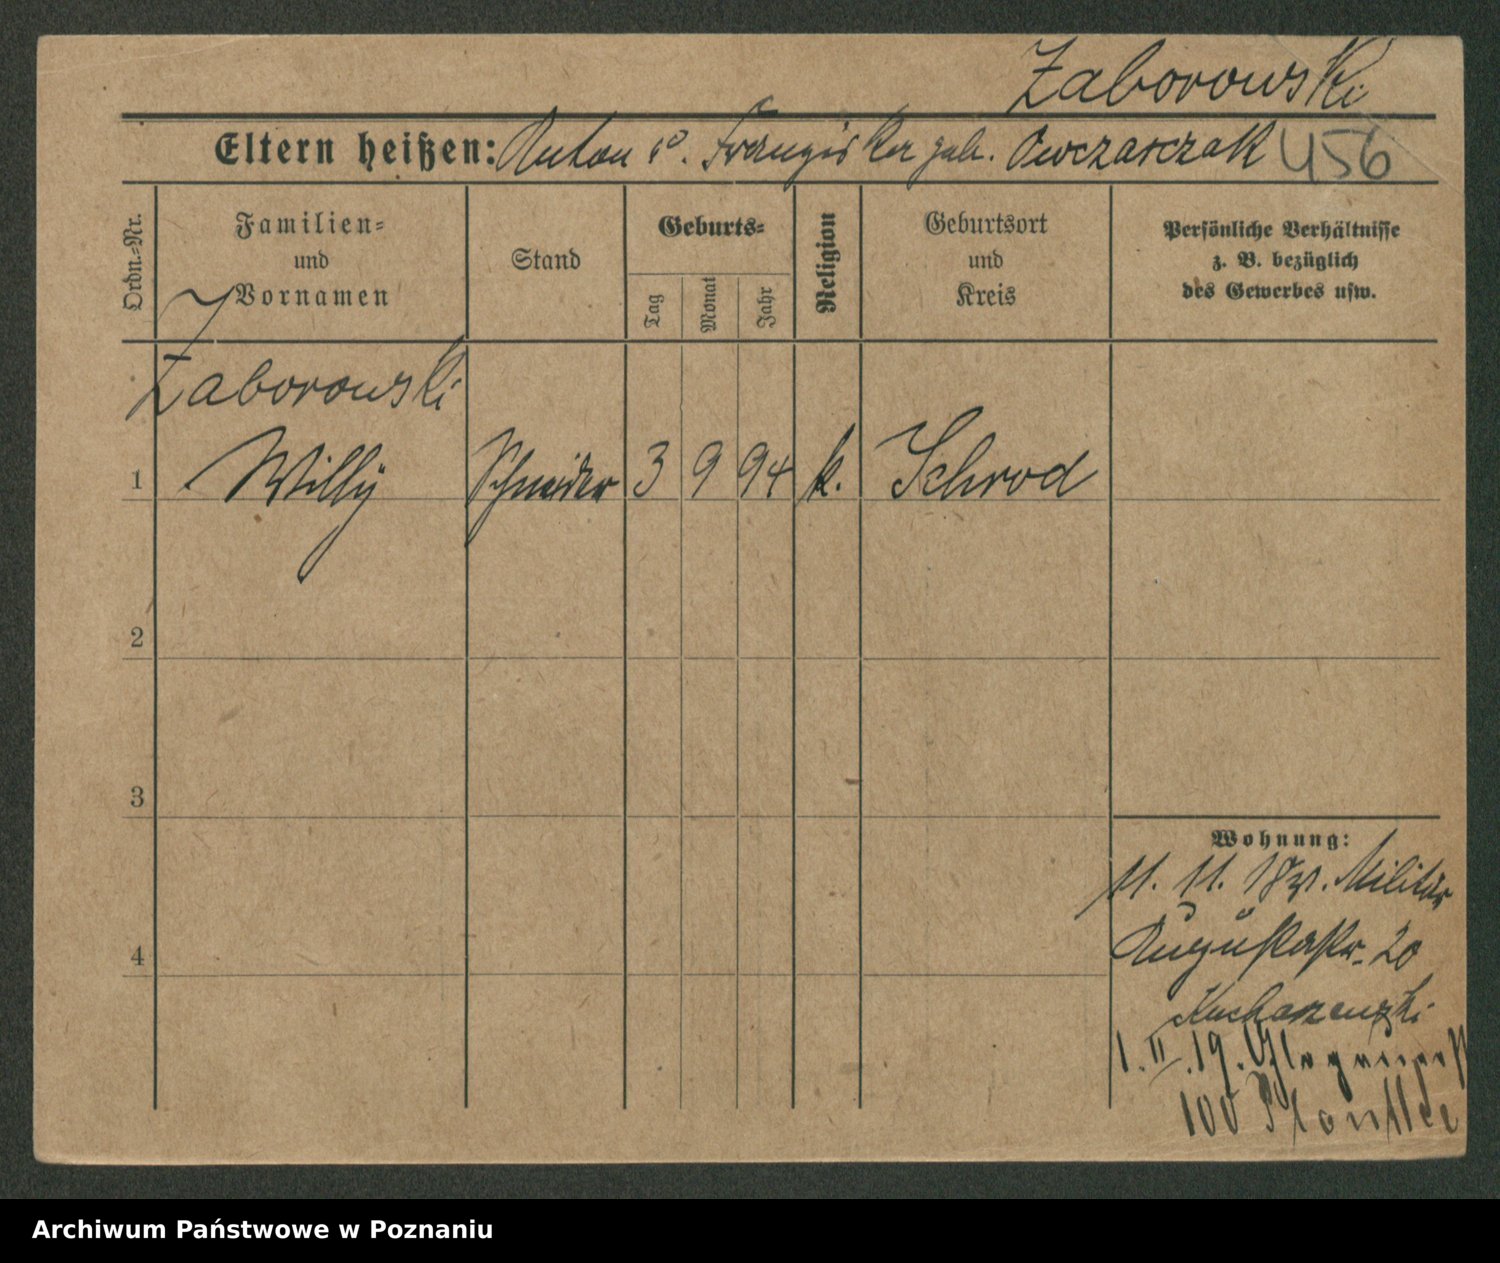 Zaborowski
Eltern heißen: Anton u. Franziska geb. Owczarczak 456
Ordn.-Nr.
Familien-
und
Vornamen
Stand
Geburts-
Tag
Monat
Jahr
Religion
Geburtsort
und
Kreis
Persönliche Verhältnisse
z. B. bezüglich
des Gewerbes usw.
Zaborowski
1 Willy Schneider 3 9 94 k. Schrod
2
3
4
Wohnung:
11. 11. 18 v. Militär
Augustastr. 20
1. II. 19.
100
Archiwum Państwowe w Poznaniu